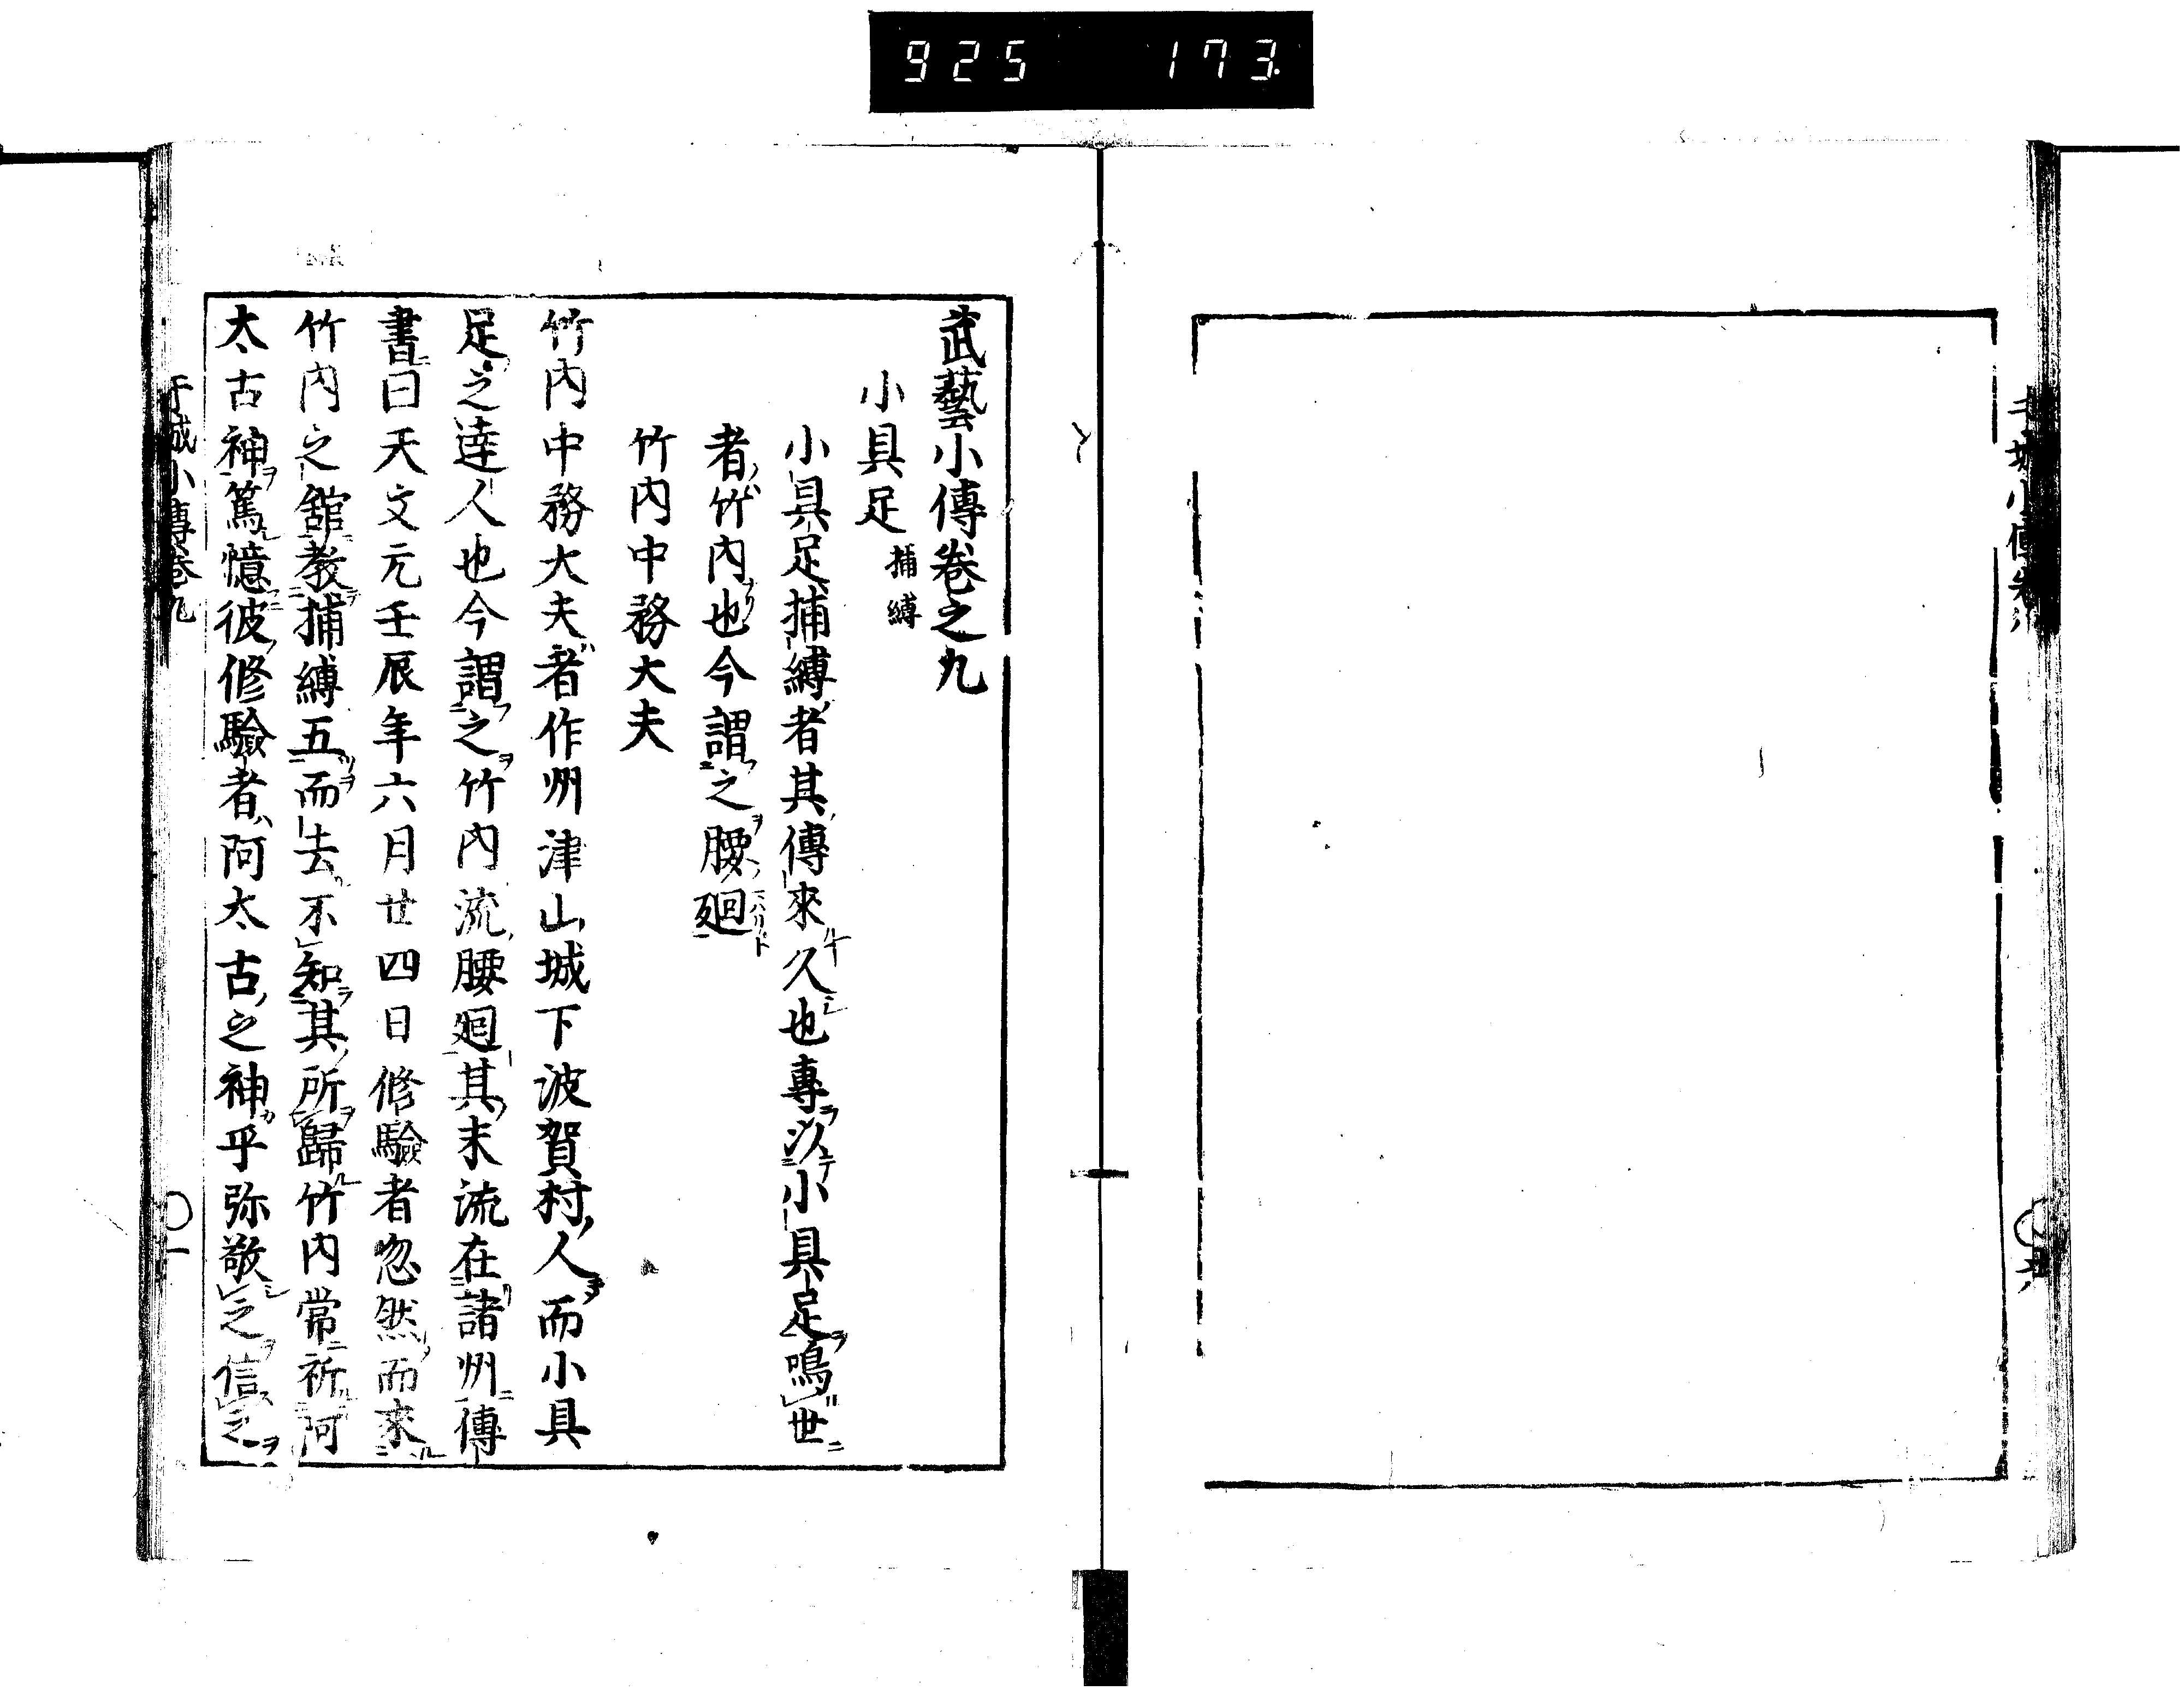 925 173.
武藝小傳卷之九
小具足 捕縛
小具足捕縛者其傳來久也專以小具足鳴世
者竹内也今謂之腰廻
竹内中務大夫
竹内中務大夫者作州津山城下波賀村人而小具
足之達人也今謂之竹内流腰廻其末流在諸州傳
書曰天文元壬辰年六月廿四日修驗者忽然而來
竹内之舘教捕縛五而去不知其所歸竹内常祈阿
太古神篤憶彼修驗者阿太古之神乎弥敬之信之
干城小傳卷九 〇一